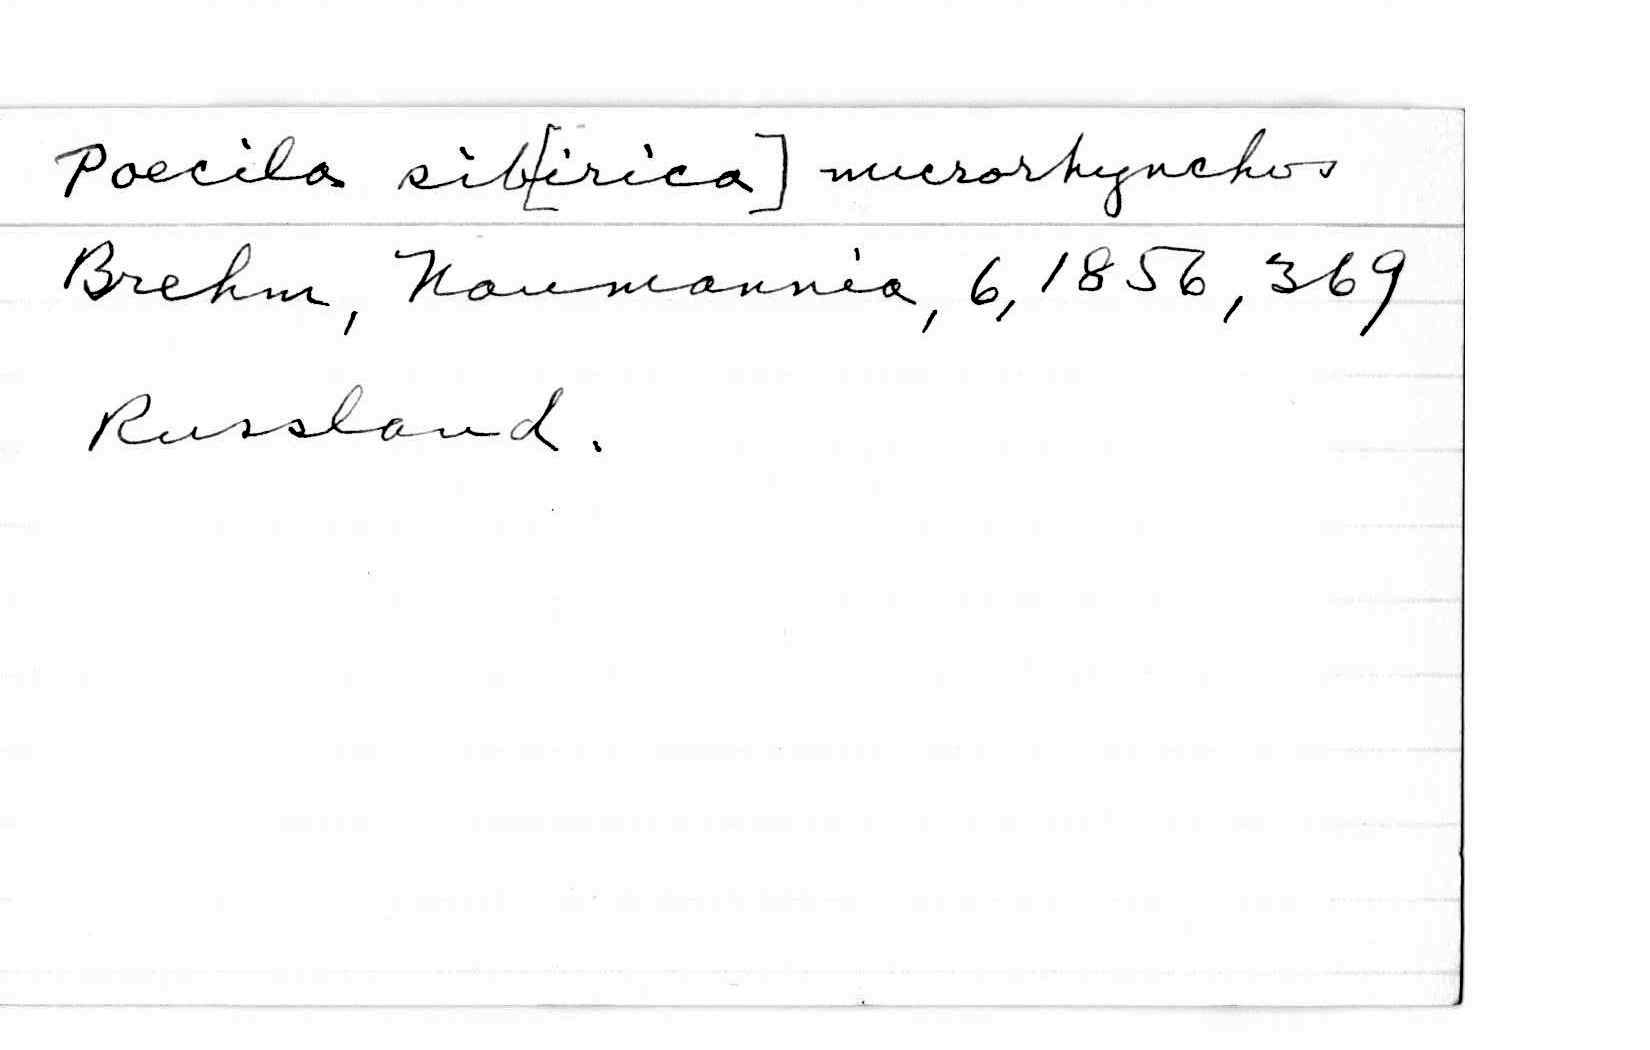 Poecila sib[irica] microrhynchos
Brehm, Naumannia, 6, 1856, 369
Russland.